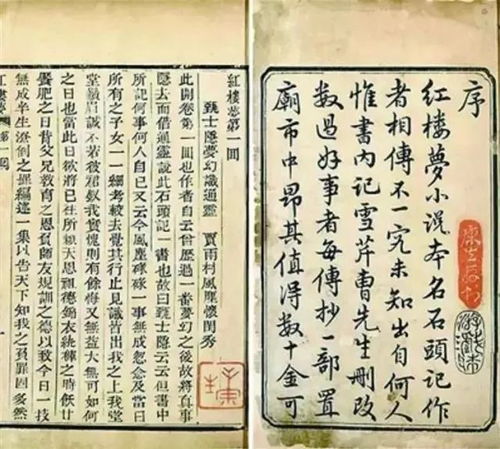 序
紅樓夢小説本名石頭記作
者相傳不一究未知出自何人
惟書内記雪芹曹先生刪改
数過好事者每傳抄一部置
廟市中昂其值得数十金可
紅樓夢第一回
甄士隱夢幻識通靈 賈雨村風塵懷閨秀
此開卷第一回也作者自云曾歷過一番夢幻之後故將真事
隱去而借通靈說此石頭記一書也故曰甄士隱云云但書中
所記何事何人自己又云今風塵碌碌一事無成忽念及當日
所有之女子一一細考較去覺其行止見識皆出我之上我堂
堂鬚眉誠不若彼裙釵我實愧則有餘悔又無益大無可如何
之日也當此日欲將已往所賴天恩祖德錦衣紈袴之時飫甘
饜肥之日背父兄教育之恩負師友規訓之德以致今日一技
無成半生潦倒之罪編述一集以告天下知我之負罪固多然
紅樓夢 第一回 一